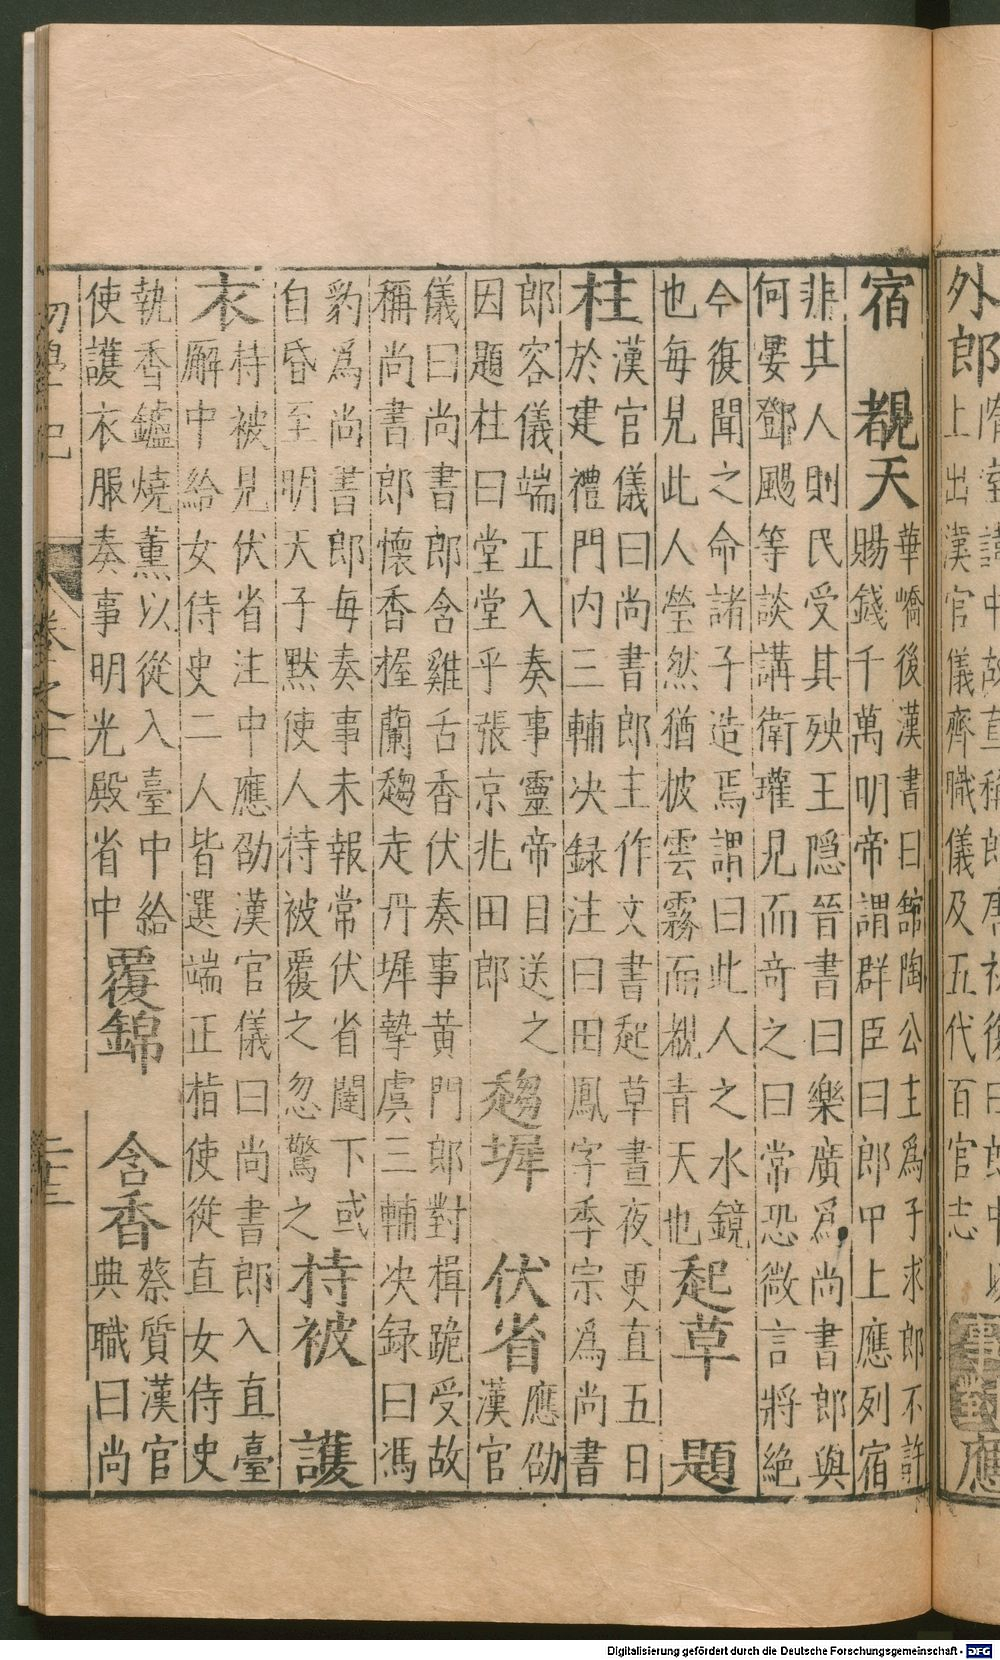 外郎
上出漢官儀齊職儀及五代百官志
應
宿 覩天
華嶠後漢書曰舘陶公主爲子求郎不許
賜錢千萬明帝謂群臣曰郎甲上應列宿
非其人則民受其殃王隠晉書曰樂廣爲尚書郎與
何晏鄧颺等談講衛瓘見而奇之曰常恐微言將絶
今復聞之命諸子造焉謂曰此人之水鏡
也每見此人瑩然猶披雲霧而覩青天也
起草 題
柱
漢官儀曰尚書郎主作文書起草晝夜更直五日
於建禮門内三輔决録注曰田鳳字季宗爲尚書
郎容儀端正入奏事靈帝目送之
因題柱曰堂堂乎張京兆田郎
趨墀 伏省
應劭
漢官
儀曰尚書郎含雞舌香伏奏事黄門郎對揖跪受故
稱尚書郎懷香握蘭趨走丹墀摯虞三輔决録曰馮
豹爲尚書郎每奏事未報常伏省閣下或
自昏至明天子黙使人持被覆之忽驚之
持被 護
衣
持被見伏省注中應劭漢官儀曰尚書郎入直臺
廨中給女侍史二人皆選端正㨖使從直女侍史
執香鑪燒薰以從入臺中給
使護衣服奏事明光殿省中
覆錦 含香
蔡質漢官
典職曰尚
初學記 卷之十一 二十二
Digitalisierung gefördert durch die Deutsche Forschungsgemeinschaft - DFG